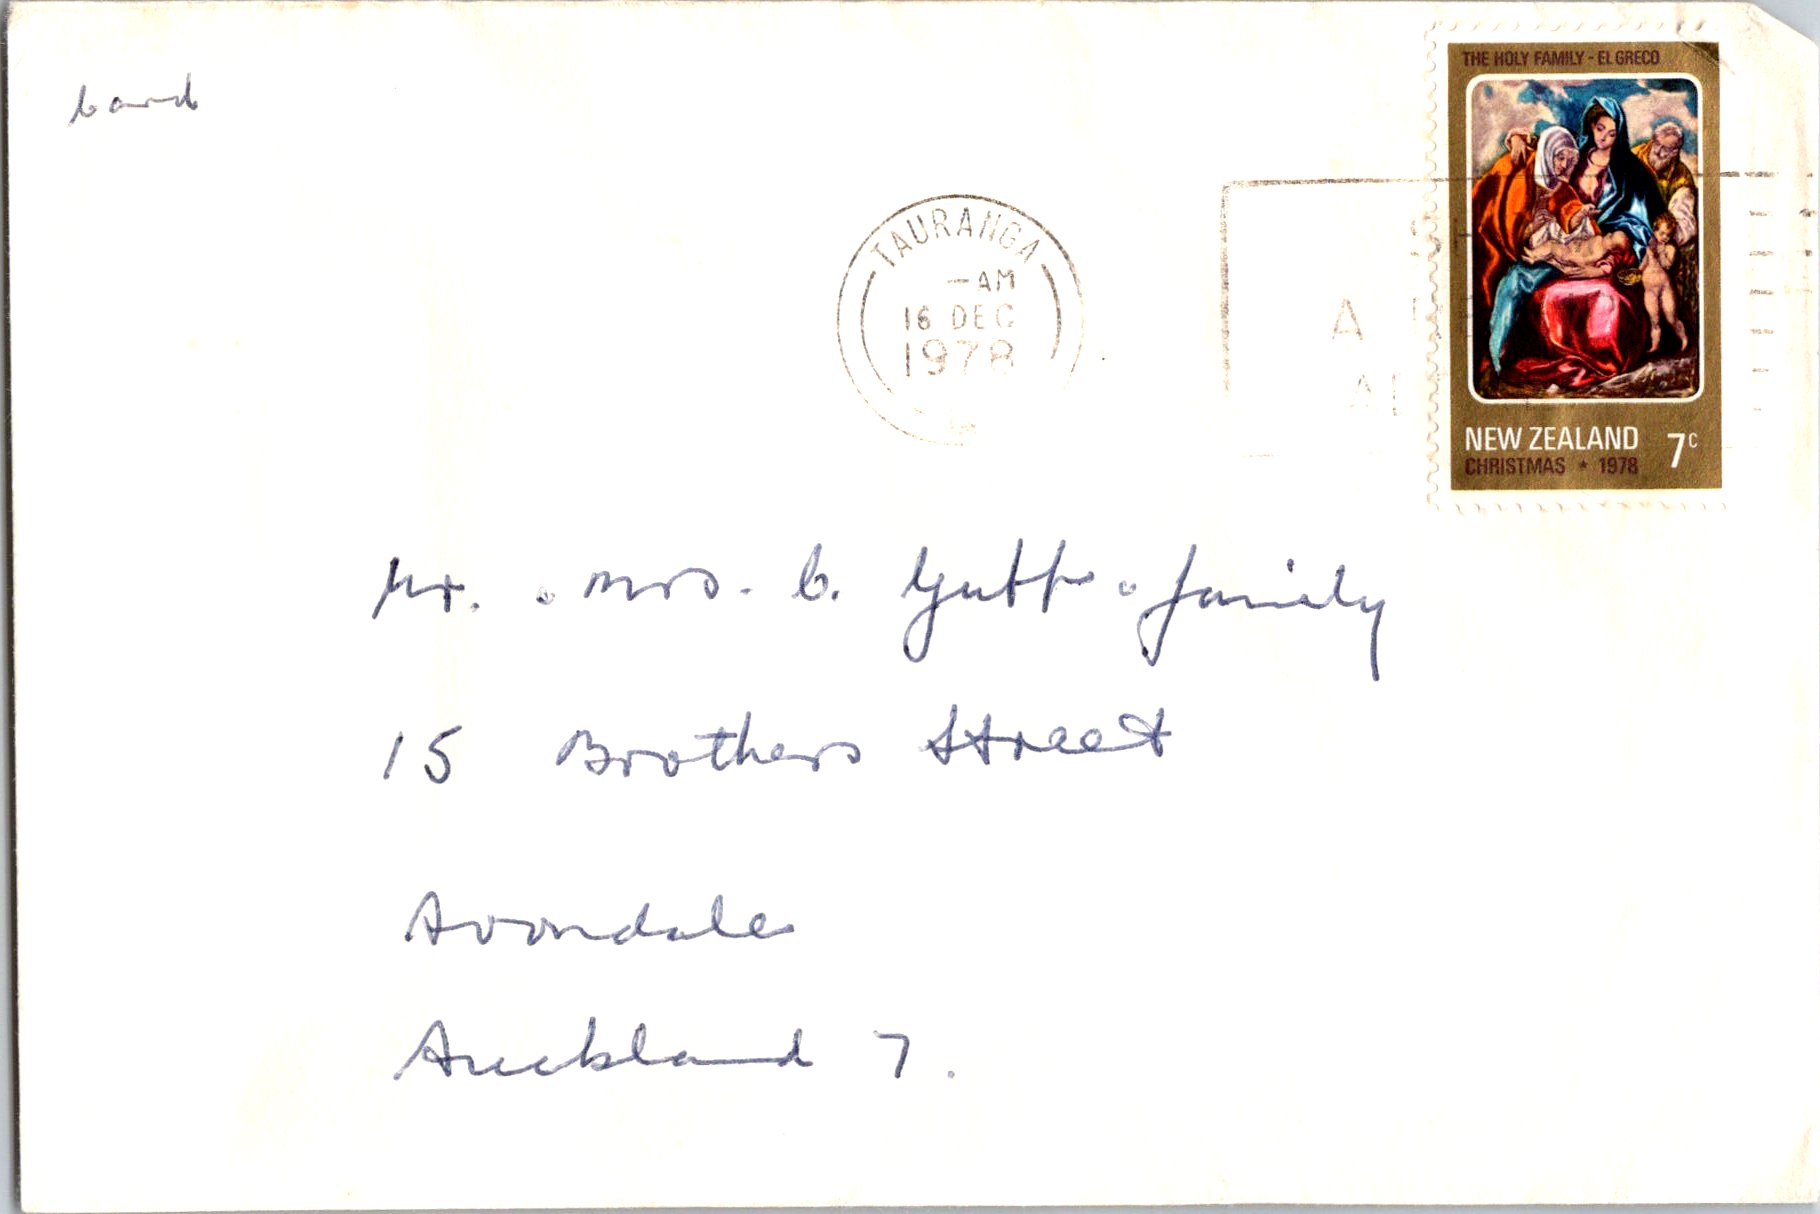 card
THE HOLY FAMILY - EL GRECO
TAURANGA
-AM
16 DEC
1978
A
NEW ZEALAND 7c
CHRISTMAS ★ 1978
Mr. & Mrs. C. & family
15 Brothers Street
Avondale
Auckland 7.